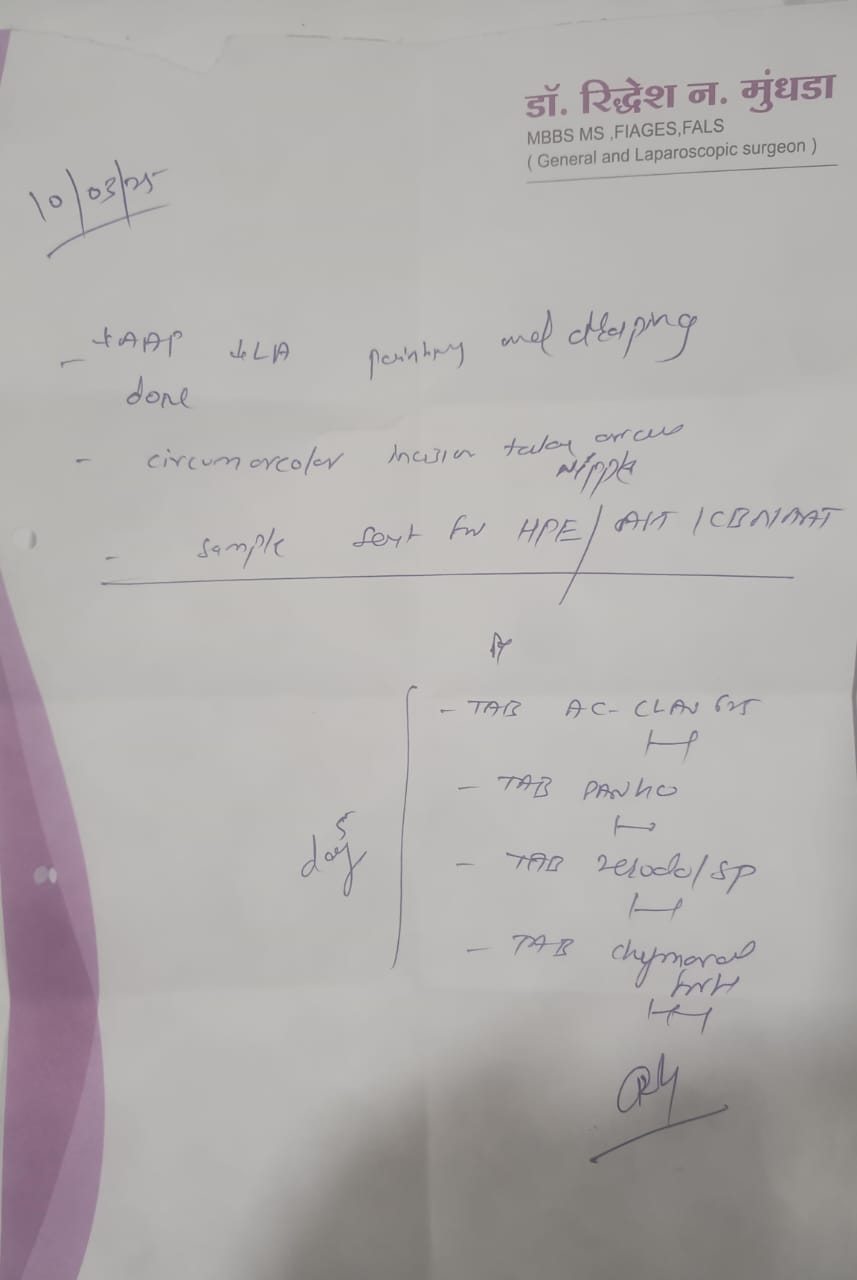 डॉ. रिद्धेश न. मुंधडा
MBBS MS ,FIAGES,FALS
( General and Laparoscopic surgeon )
10/03/25
- ↓AAP ↓LA painting and draping
done
- circumareolar incision taken
Nipple
- sample sent for HPE/
- TAB AC-CLAV 625
- TAB PAN 40
5
day
- TAB zerodol/SP
- TAB chymoral
forte